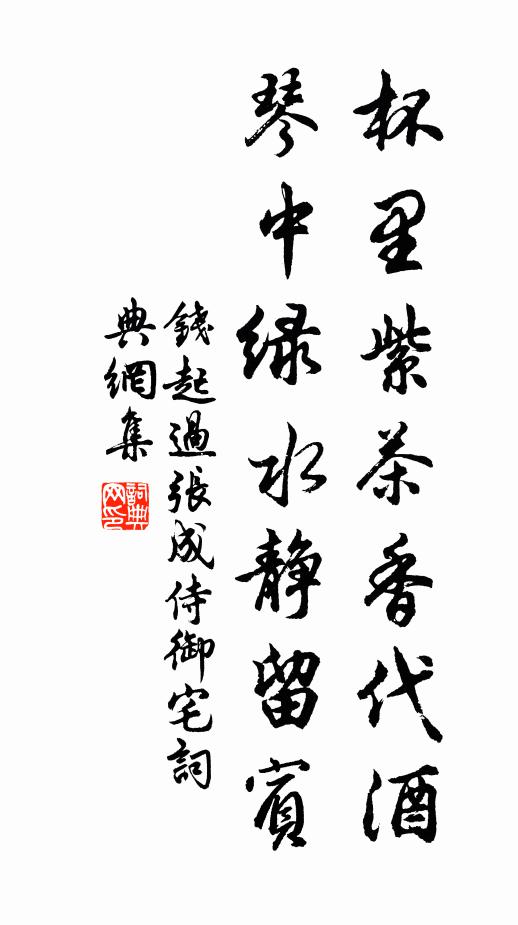 杯里紫茶香代酒
琴中緑水静留賓
錢起過張成侍御宅詞
典網集
詞典
网印